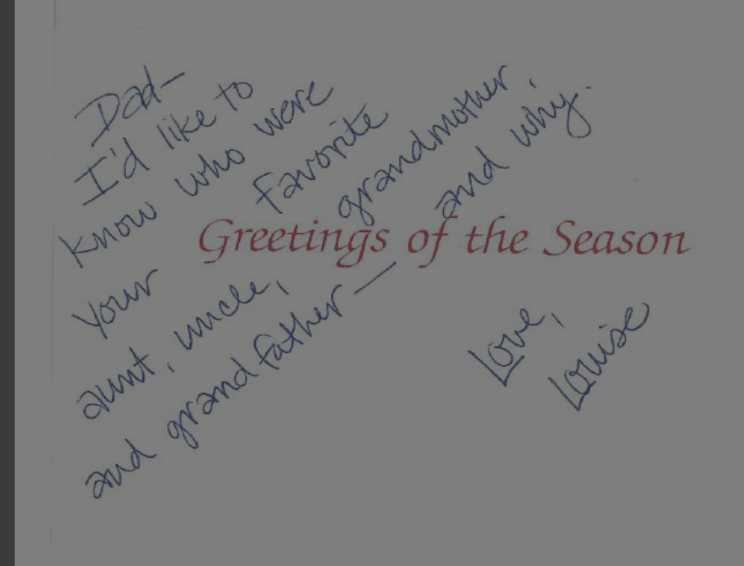 Dad—
I'd like to
know who were
your favorite
aunt, uncle, grandmother,
and grandfather — and why.
Greetings of the Season
Love,
Louise